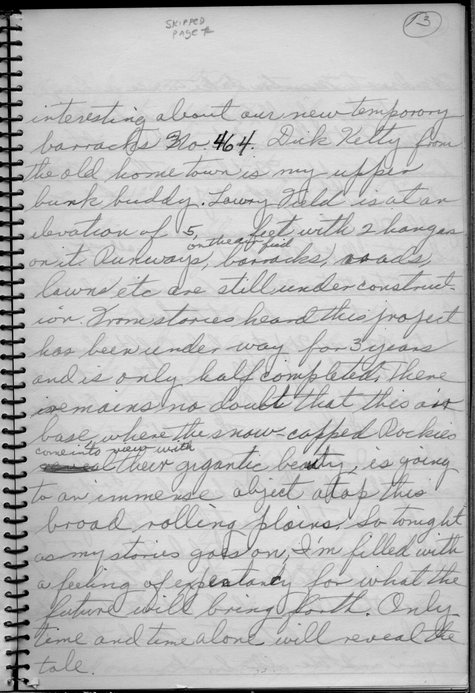 SKIPPED
PAGE
13
interesting about our new temporory
barracks No. 464. Dick Kelly from
the old home town is my upper
bunk buddy. Lowry Field is at an
elevation of 5, feet with 2 hangars
on the air field
on it. Runways, barracks, roads,
lawns etc are still under construct-
ion. From stories heard this project
has been under way for 3 years
and is only half completed. There
remains no doubt that this air
base, where the snow-capped Rockies
come into view with
their gigantic beauty, is going
to an immense object atop this
broad rolling plains. So tonight
as my stories goes on, I'm filled with
a feeling of expectancy for what the
future will bring forth. Only
time and time alone will reveal the
tale.